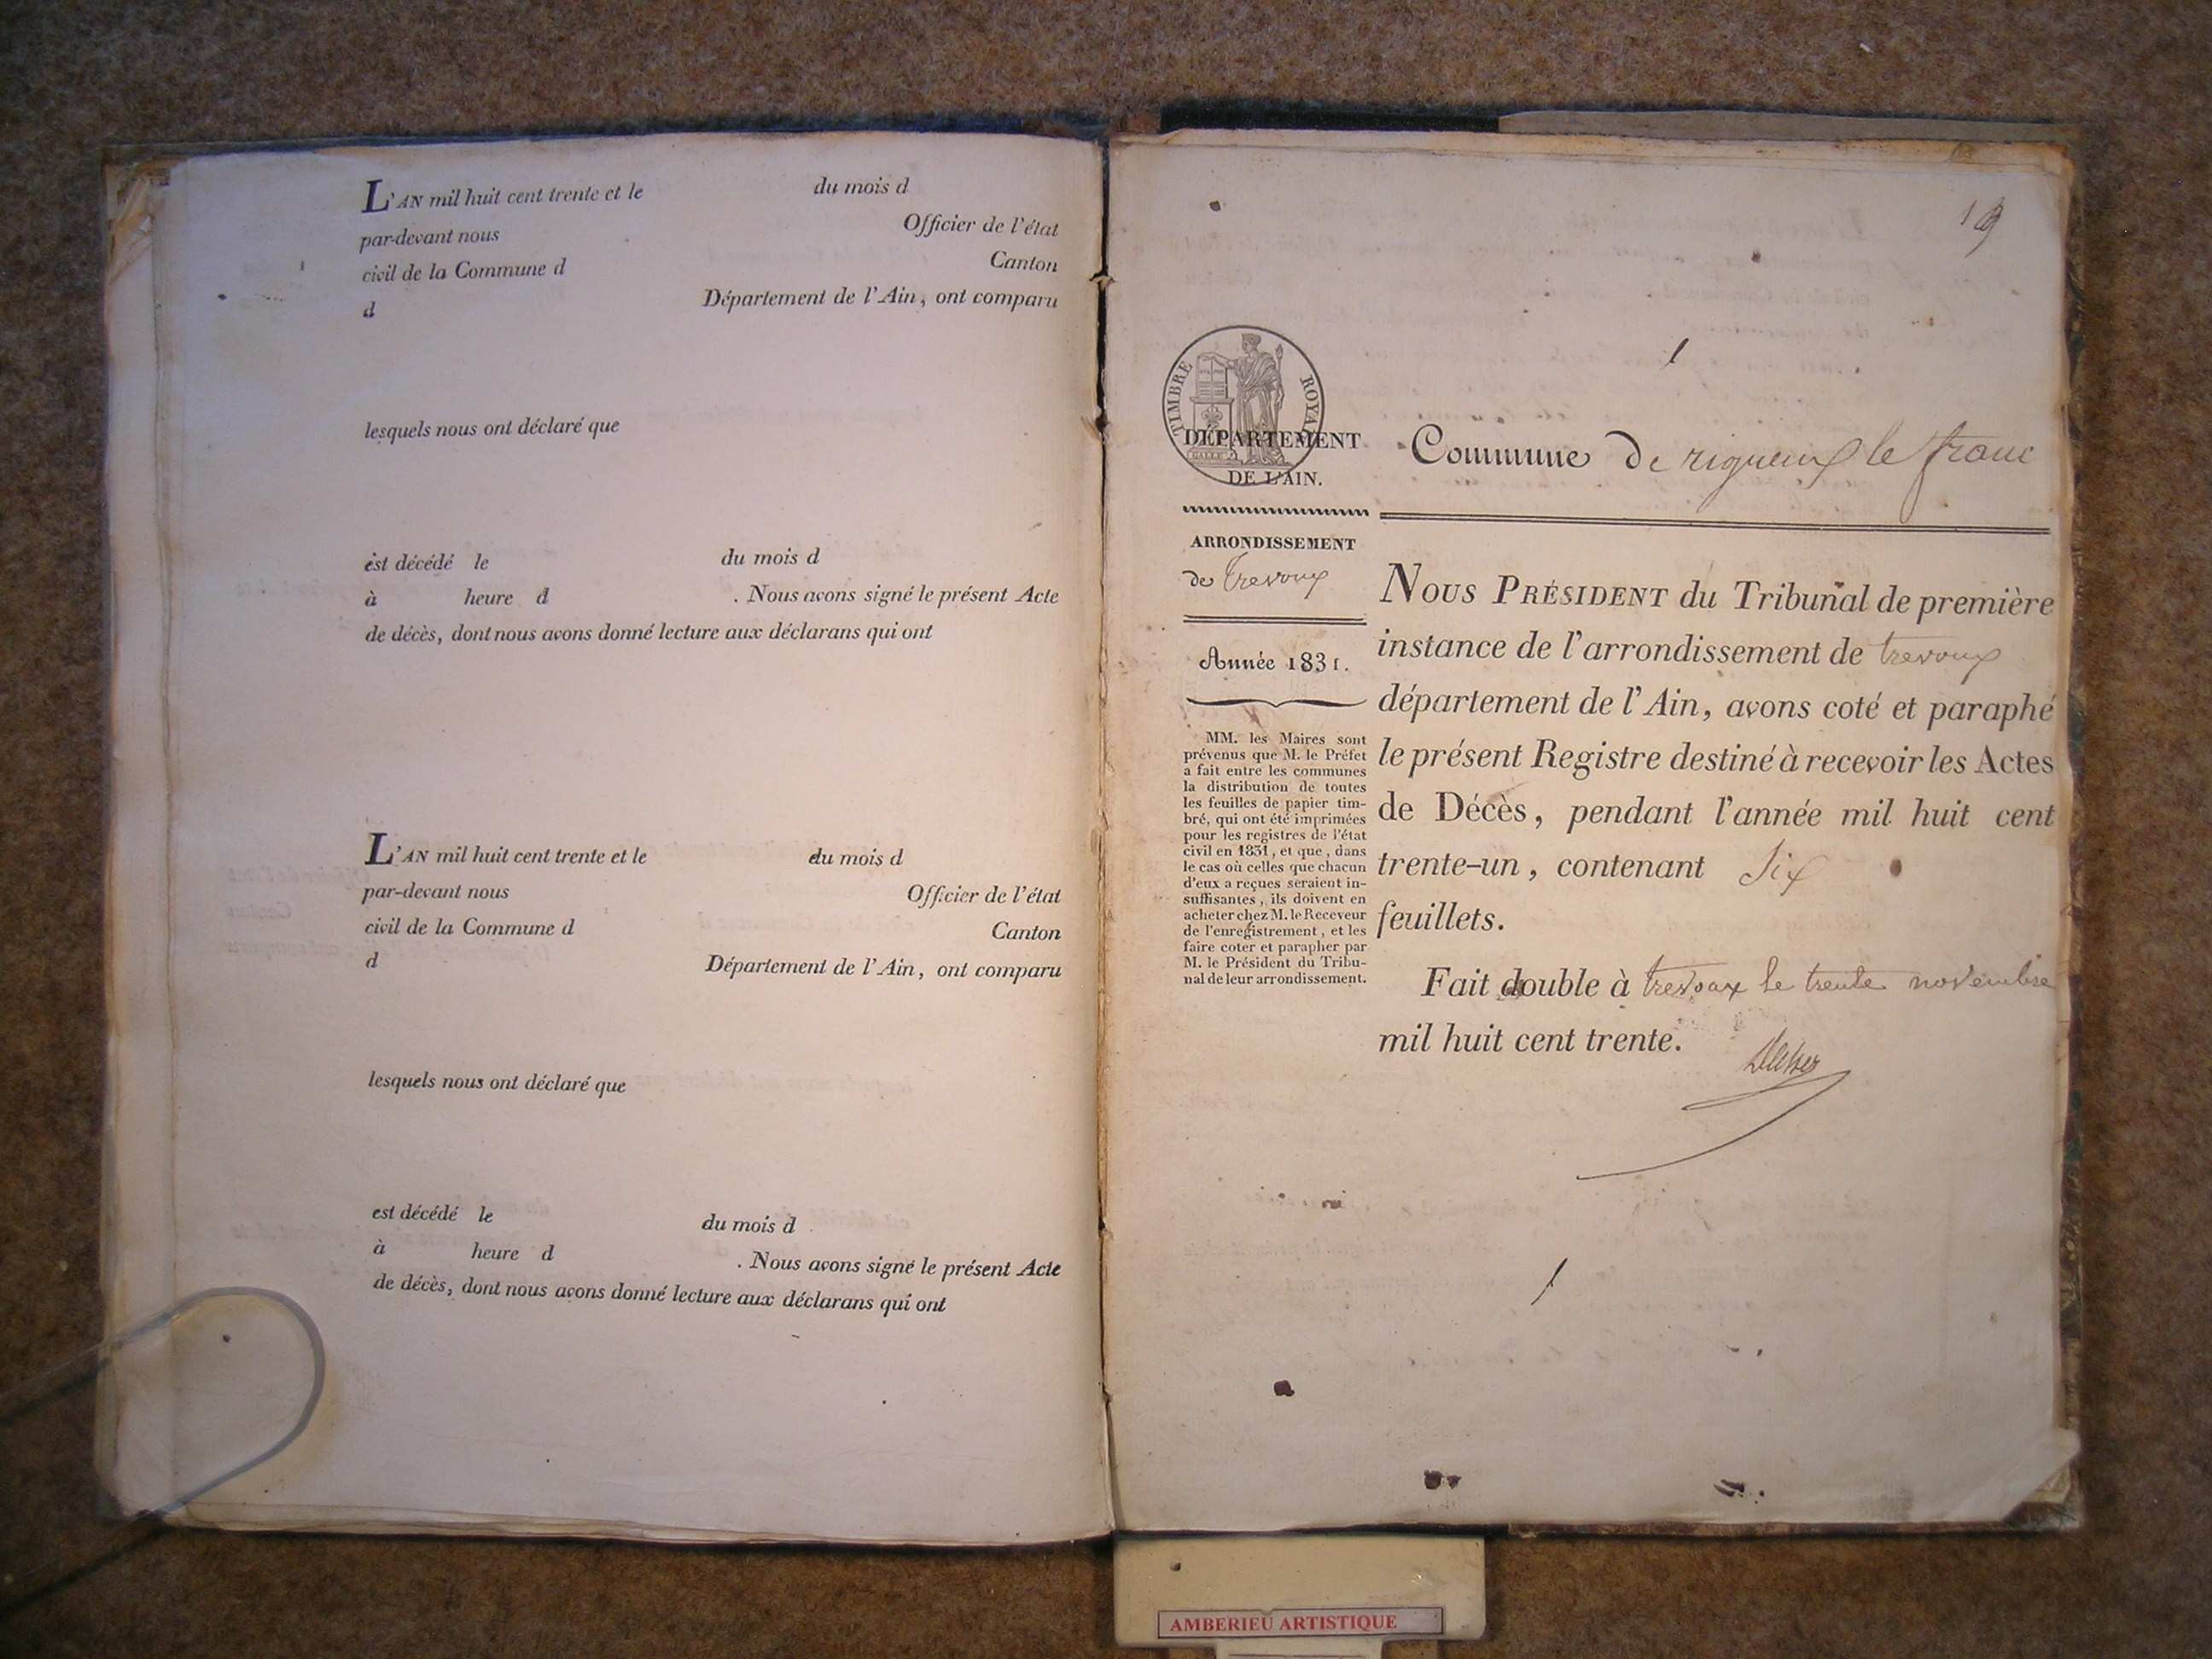 L'AN mil huit cent trente et le du mois d
par-devant nous Officier de l'état
civil de la Commune d Canton
d Département de l'Ain, ont comparu
lesquels nous ont déclaré que
est décédé le du mois d
à heure d . Nous avons signé le présent Acte
de décès, dont nous avons donné lecture aux déclarans qui ont
L'AN mil huit cent trente et le du mois d
par-devant nous Officier de l'état
civil de la Commune d Canton
d Département de l'Ain, ont comparu
lesquels nous ont déclaré que
est décédé le du mois d
à heure d . Nous avons signé le présent Acte
de décès, dont nous avons donné lecture aux déclarans qui ont
1
TIMBRE ROYAL
DÉPARTEMENT
DE L'AIN.
ARRONDISSEMENT
de trevoux
Année 1831.
MM. les Maires sont
prévenus que M. le Préfet
a fait entre les communes
la distribution de toutes
les feuilles de papier tim-
bré, qui ont été imprimées
pour les registres de l'état
civil en 1831, et que, dans
le cas où celles que chacun
d'eux a reçues seraient in-
suffisantes, ils doivent en
acheter chez M. le Receveur
de l'enregistrement, et les
faire coter et parapher par
M. le Président du Tribu-
nal de leur arrondissement.
Commune de rigneux le franc
NOUS PRÉSIDENT du Tribunal de première
instance de l'arrondissement de trevoux
département de l'Ain, avons coté et paraphé
le présent Registre destiné à recevoir les Actes
de Décès, pendant l'année mil huit cent
trente-un, contenant Six
feuillets.
Fait double à trevoux le trente novembre
mil huit cent trente.
1
AMBERIEU ARTISTIQUE